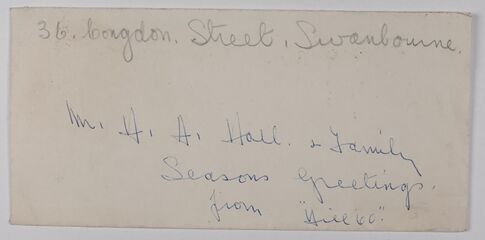 36. Congdon. Street, Swanbourne.
Mr. H. A. Hall. & Family
Seasons Greetings.
from